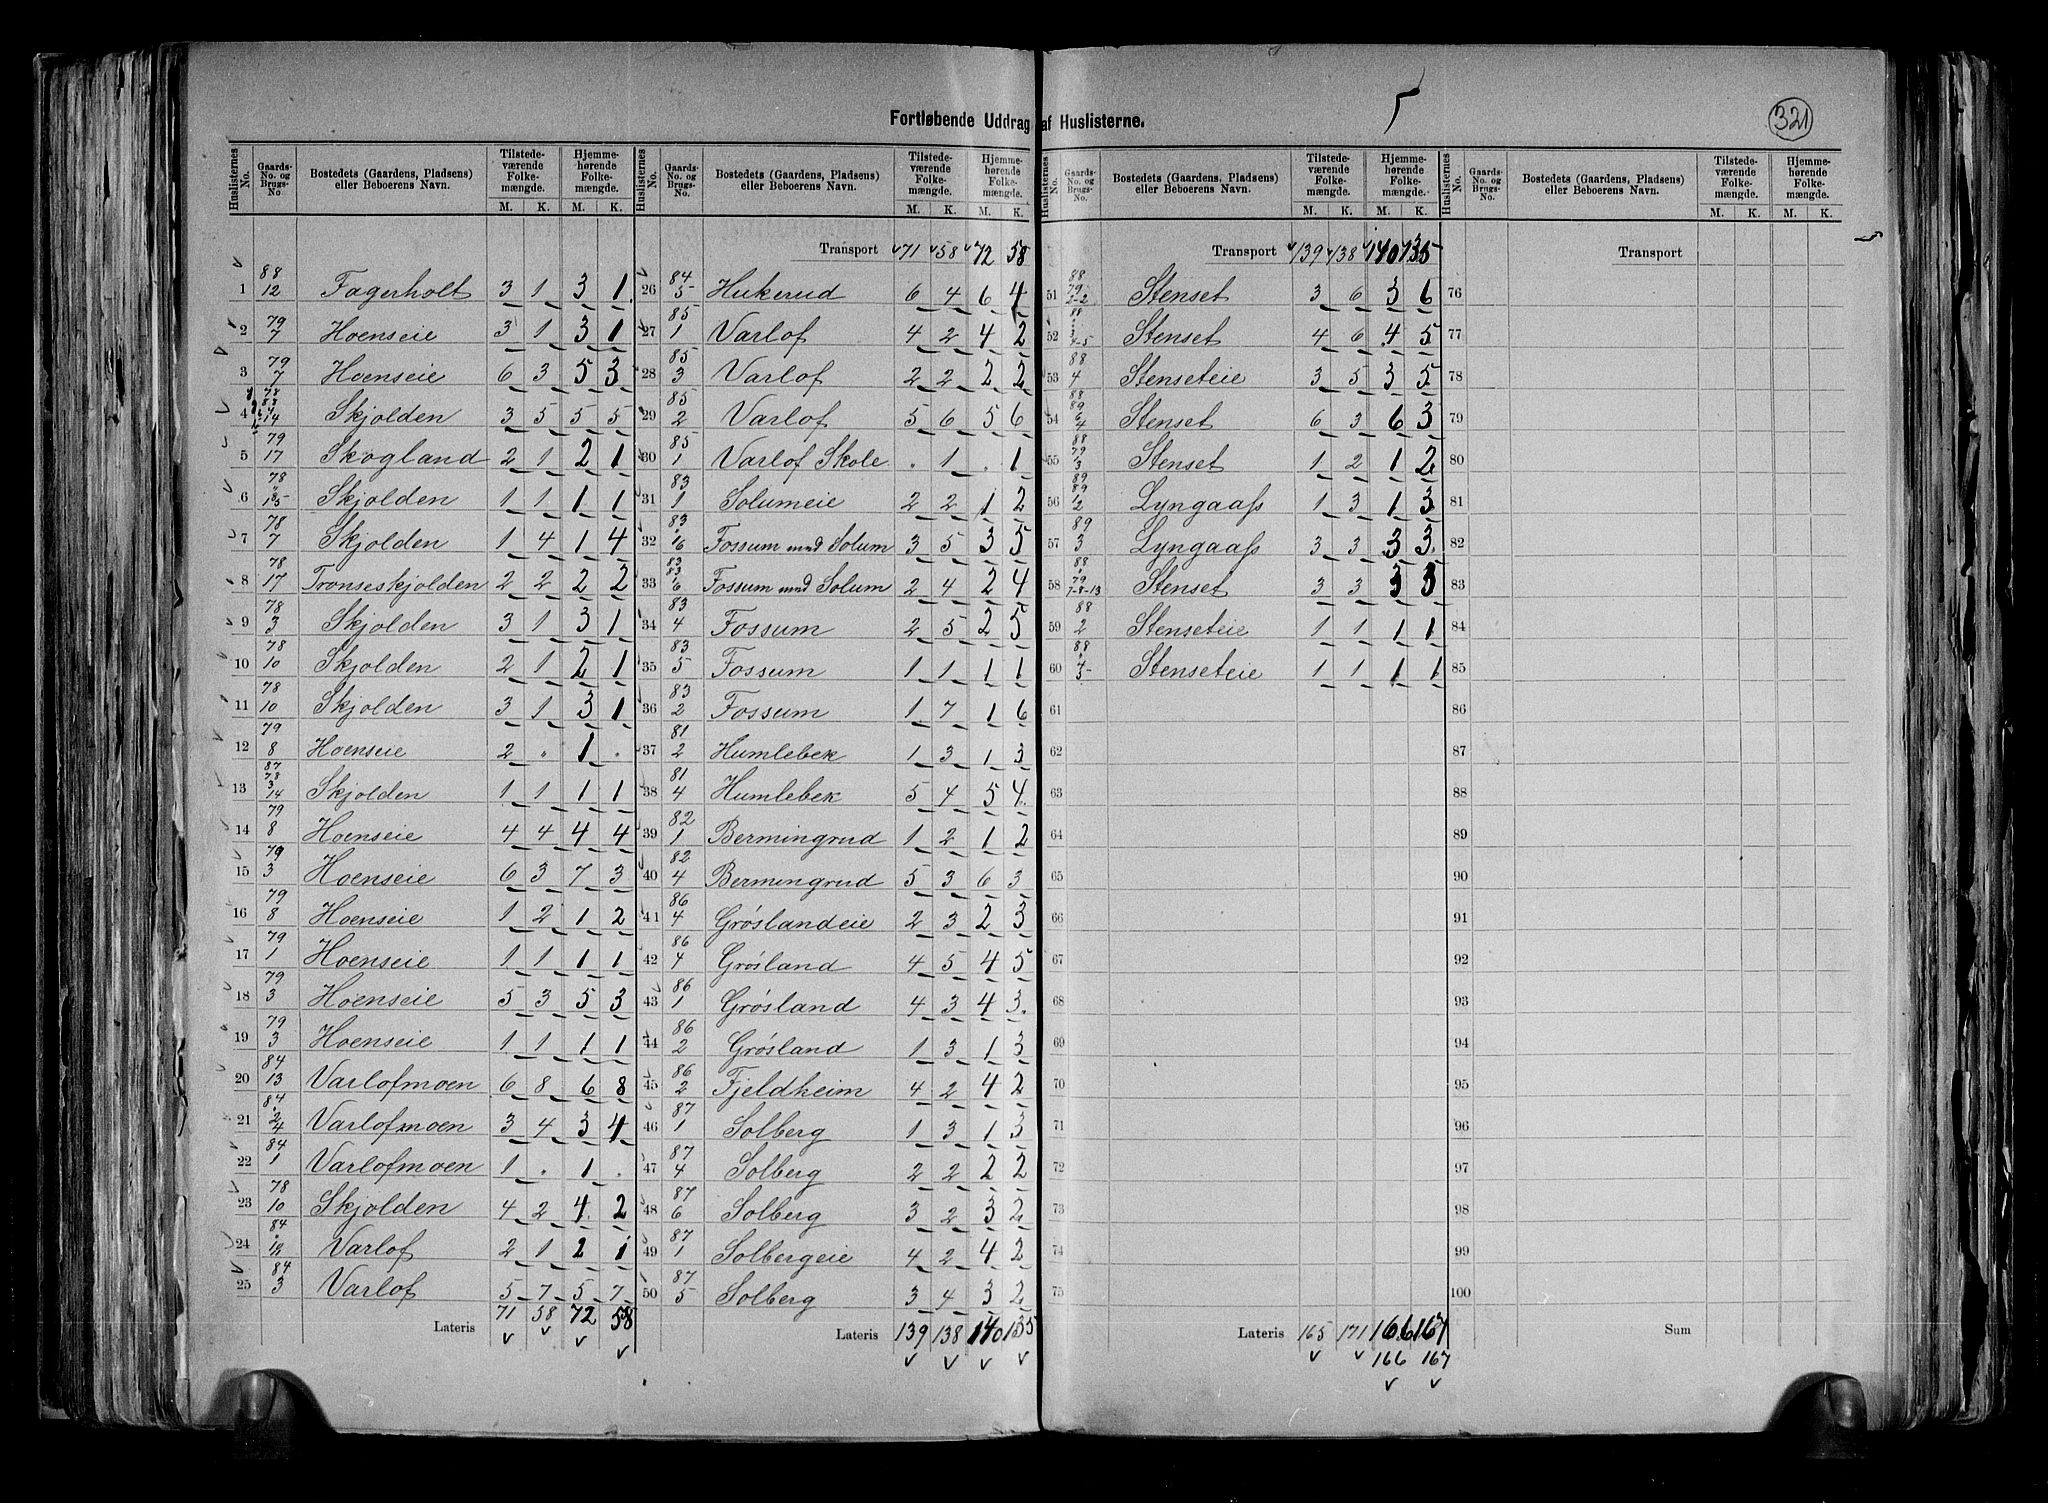 5
321
Fortløbende Uddrag af Huslisterne.
Huslisternes No. | Gaards-No. og Brugs-No | Bostedets (Gaardens, Pladsens) eller Beboerens Navn. | Tilstedeværende Folkemængde. M. K. | Hjemmehørende Folkemængde. M. K.
1 88 12 Fagerholt 3 1 3 1
2 79 7 Hoenseie 3 1 3 1
3 79 7 Hoenseie 6 3 5 3
4 Skjolden 3 5 5 5
5 79 17 Skogland 2 1 2 1
6 78 Skjolden 1 1 1 1
7 78 7 Skjolden 1 4 1 4
8 78 17 Tronseskjolden 2 2 2 2
9 78 3 Skjolden 3 1 3 1
10 78 10 Skjolden 2 1 2 1
11 78 10 Skjolden 3 1 3 1
12 79 8 Hoenseie 2 . 1 .
13 87 78 3 14 Skjolden 1 1 1 1
14 79 8 Hoenseie 4 4 4 4
15 79 3 Hoenseie 6 3 7 3
16 79 8 Hoenseie 1 2 1 2
17 79 1 Hoenseie 1 1 1 1
18 79 3 Hoenseie 5 3 5 3
19 79 3 Hoenseie 1 1 1 1
20 84 13 Varlofmoen 6 8 6 8
21 84 2 4 Varlofmoen 3 4 3 4
22 84 1 Varlofmoen 1 . 1 .
23 78 10 Skjolden 4 2 4 2
24 84 Varlof 2 1 2 1
25 84 3 Varlof 5 7 5 7
Lateris 71 58 72 58
Huslisternes No. | Gaards-No. og Brugs-No. | Bostedets (Gaardens, Pladsens) eller Beboerens Navn. | Tilstedeværende Folkemængde. M. K. | Hjemmehørende Folkemængde. M. K.
Transport 71 58 72 58
26 84 5 Hukerud 6 4 6 4
27 85 1 Varlof 4 2 4 2
28 85 3 Varlof 2 2 2 2
29 85 2 Varlof 5 6 5 6
30 85 1 Varlof Skole . 1 . 1
31 83 1 Solumeie 2 2 1 2
32 83 Fossum med Solum 3 5 3 5
33 83 83 6 Fossum med Solum 2 4 2 4
34 83 4 Fossum 2 5 2 5
35 83 5 Fossum 1 1 1 1
36 83 2 Fossum 1 7 1 6
37 81 2 Humlebek 1 3 1 3
38 81 4 Humlebek 5 4 5 4
39 82 1 Bermingrud 1 2 1 2
40 82 4 Bermingrud 5 3 6 3
41 86 4 Grøslandeie 2 3 2 3
42 86 4 Grøsland 4 5 4 5
43 86 1 Grøsland 4 3 4 3
44 86 2 Grøsland 1 3 1 3
45 86 2 Fjeldheim 4 2 4 2
46 87 1 Solberg 1 3 1 3
47 87 4 Solberg 2 2 2 2
48 87 6 Solberg 3 2 3 2
49 87 1 Solbergeie 4 2 4 2
50 87 5 Solberg 3 4 3 2
Lateris 139 138 140 135
Huslisternes No. | Gaards-No. og Brugs-No. | Bostedets (Gaardens, Pladsens) eller Beboerens Navn. | Tilstedeværende Folkemængde. M. K. | Hjemmehørende Folkemængde. M. K.
Transport 139 138 140 135
51 88 79 2-2 Stenset 3 6 3 6
52 88 3 4-5 Stenset 4 6 4 5
53 88 4 Stenseteie 3 5 3 5
54 88 89 6 4 Stenset 6 3 6 3
55 88 79 1 3 Stenset 1 2 1 2
56 89 89 1 2 Lyngaafs 1 3 1 3
57 89 3 Lyngaafs 3 3 3 3
58 88 79 7-8-13 Stenset 3 3 3 3
59 88 2 Stenseteie 1 1 1 1
60 88 Stenseteie 1 1 1 1
61
62
63
64
65
66
67
68
69
70
71
72
73
74
75
Lateris 165 171 166 167
166 167
Huslisternes No. | Gaards-No. og Brugs-No. | Bostedets (Gaardens, Pladsens) eller Beboerens Navn. | Tilstedeværende Folkemængde. M. K. | Hjemmehørende Folkemængde. M. K.
Transport
76
77
78
79
80
81
82
83
84
85
86
87
88
89
90
91
92
93
94
95
96
97
98
99
100
Sum